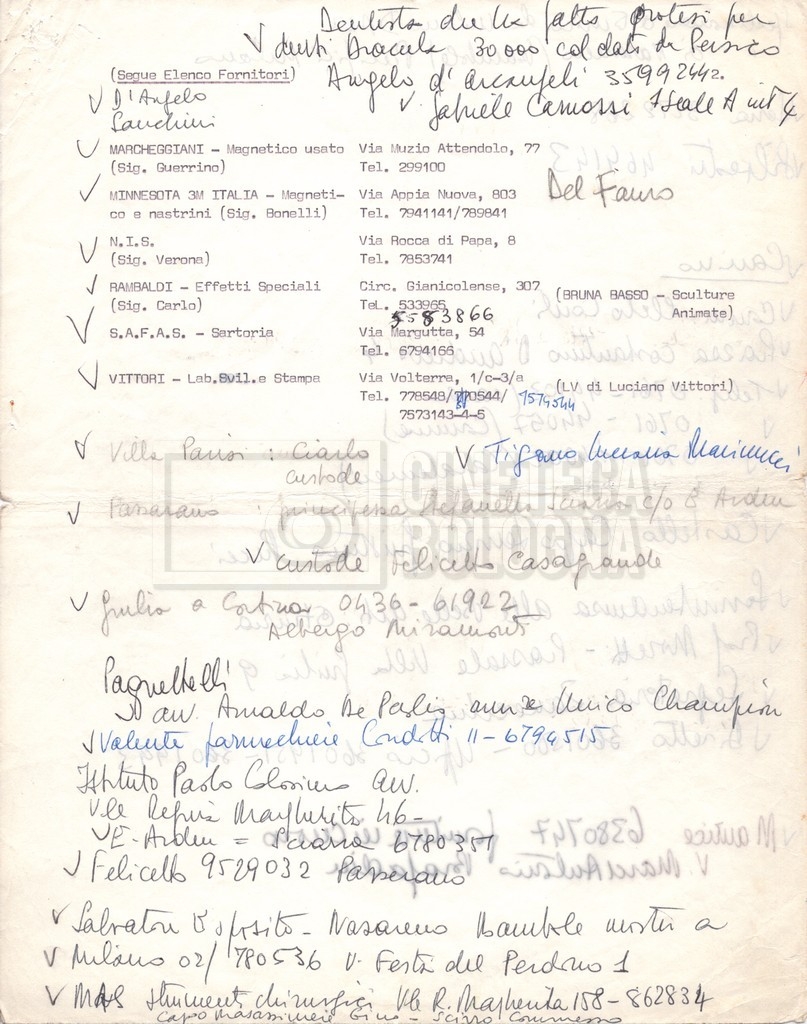 Dentista che ha fatto protesi per
denti Dracula 30000 col dati da Persico
(Segue Elenco Fornitori) Angelo d'Arcangeli 35992442.
D'Angelo Gabriele Carnossi 1 Scale A int 4
MARCHEGGIANI - Magnetico usato Via Muzio Attendolo, 77
(Sig. Guerrino) Tel. 299100
MINNESOTA 3M ITALIA - Magneti- Via Appia Nuova, 803 Del Fauro
co e nastrini (Sig. Bonelli) Tel. 7941141/789841
N.I.S. Via Rocca di Papa, 8
(Sig. Verona) Tel. 7853741
RAMBALDI - Effetti Speciali Circ. Gianicolense, 307 (BRUNA BASSO - Sculture
(Sig. Carlo) TeL. 533965 Animate)
5583866
S.A.F.A.S. - Sartoria Via Margutta, 54
Tel. 6794166
VITTORI - Lab.Svil.e Stampa Via Volterra, 1/c-3/a (LV di Luciano Vittori)
Tel. 778548/ 544/ 7574544
7573143-4-5
Villa Parisi : Ciarlo
custode
Passarano : principessa Sciarra c/o E Arden
CINETECA
BOLOGNA
custode Felicetto Casagrande
Giulia a Cortina 0436-61922
Albergo Miramonti
Pagnottelli
avv. Arnaldo De Paolis Unico Champion
Valente farmachiere Condotti 11-6794515
Istituto Paolo Colosimo avv.
V.le Regina Margherita 46-
E. Arden = Sciarra 6780351
Felicetto 9529032 Passerano
Salvatori Esposito - Nazareno Bambole a
Milano 02/780536 V. Festa del Perdono 1
MAS strumenti chirurgici V.le R. Margherita 158-862834
Capo Gino - Commesso